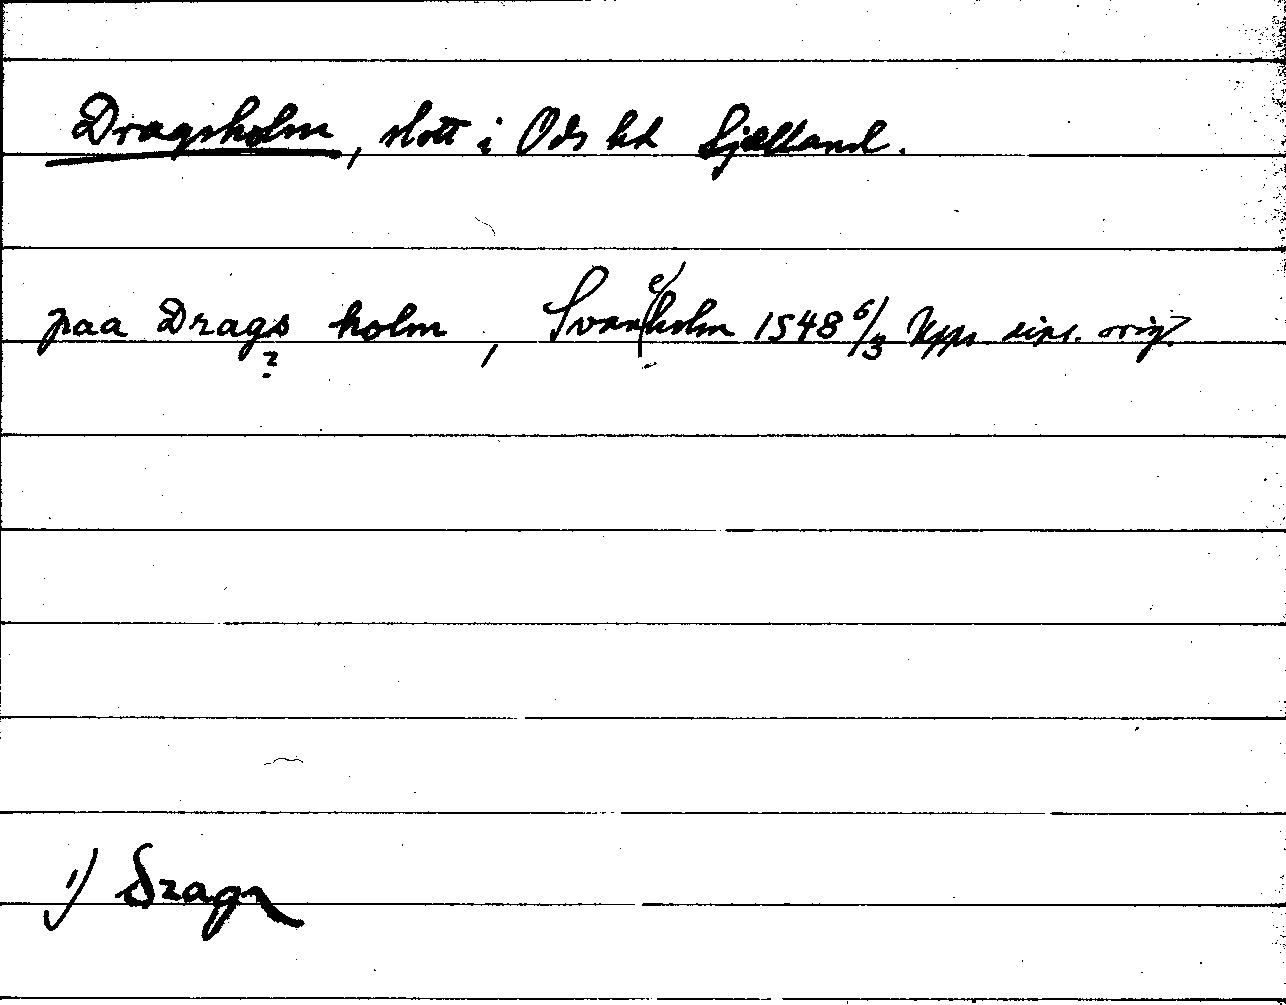 Dragsholm, slott i Ods hd Sjælland.
paa Drags holm, Svaneholm 1548 6/3 Upps. dipl. orig.
?
1) Drags